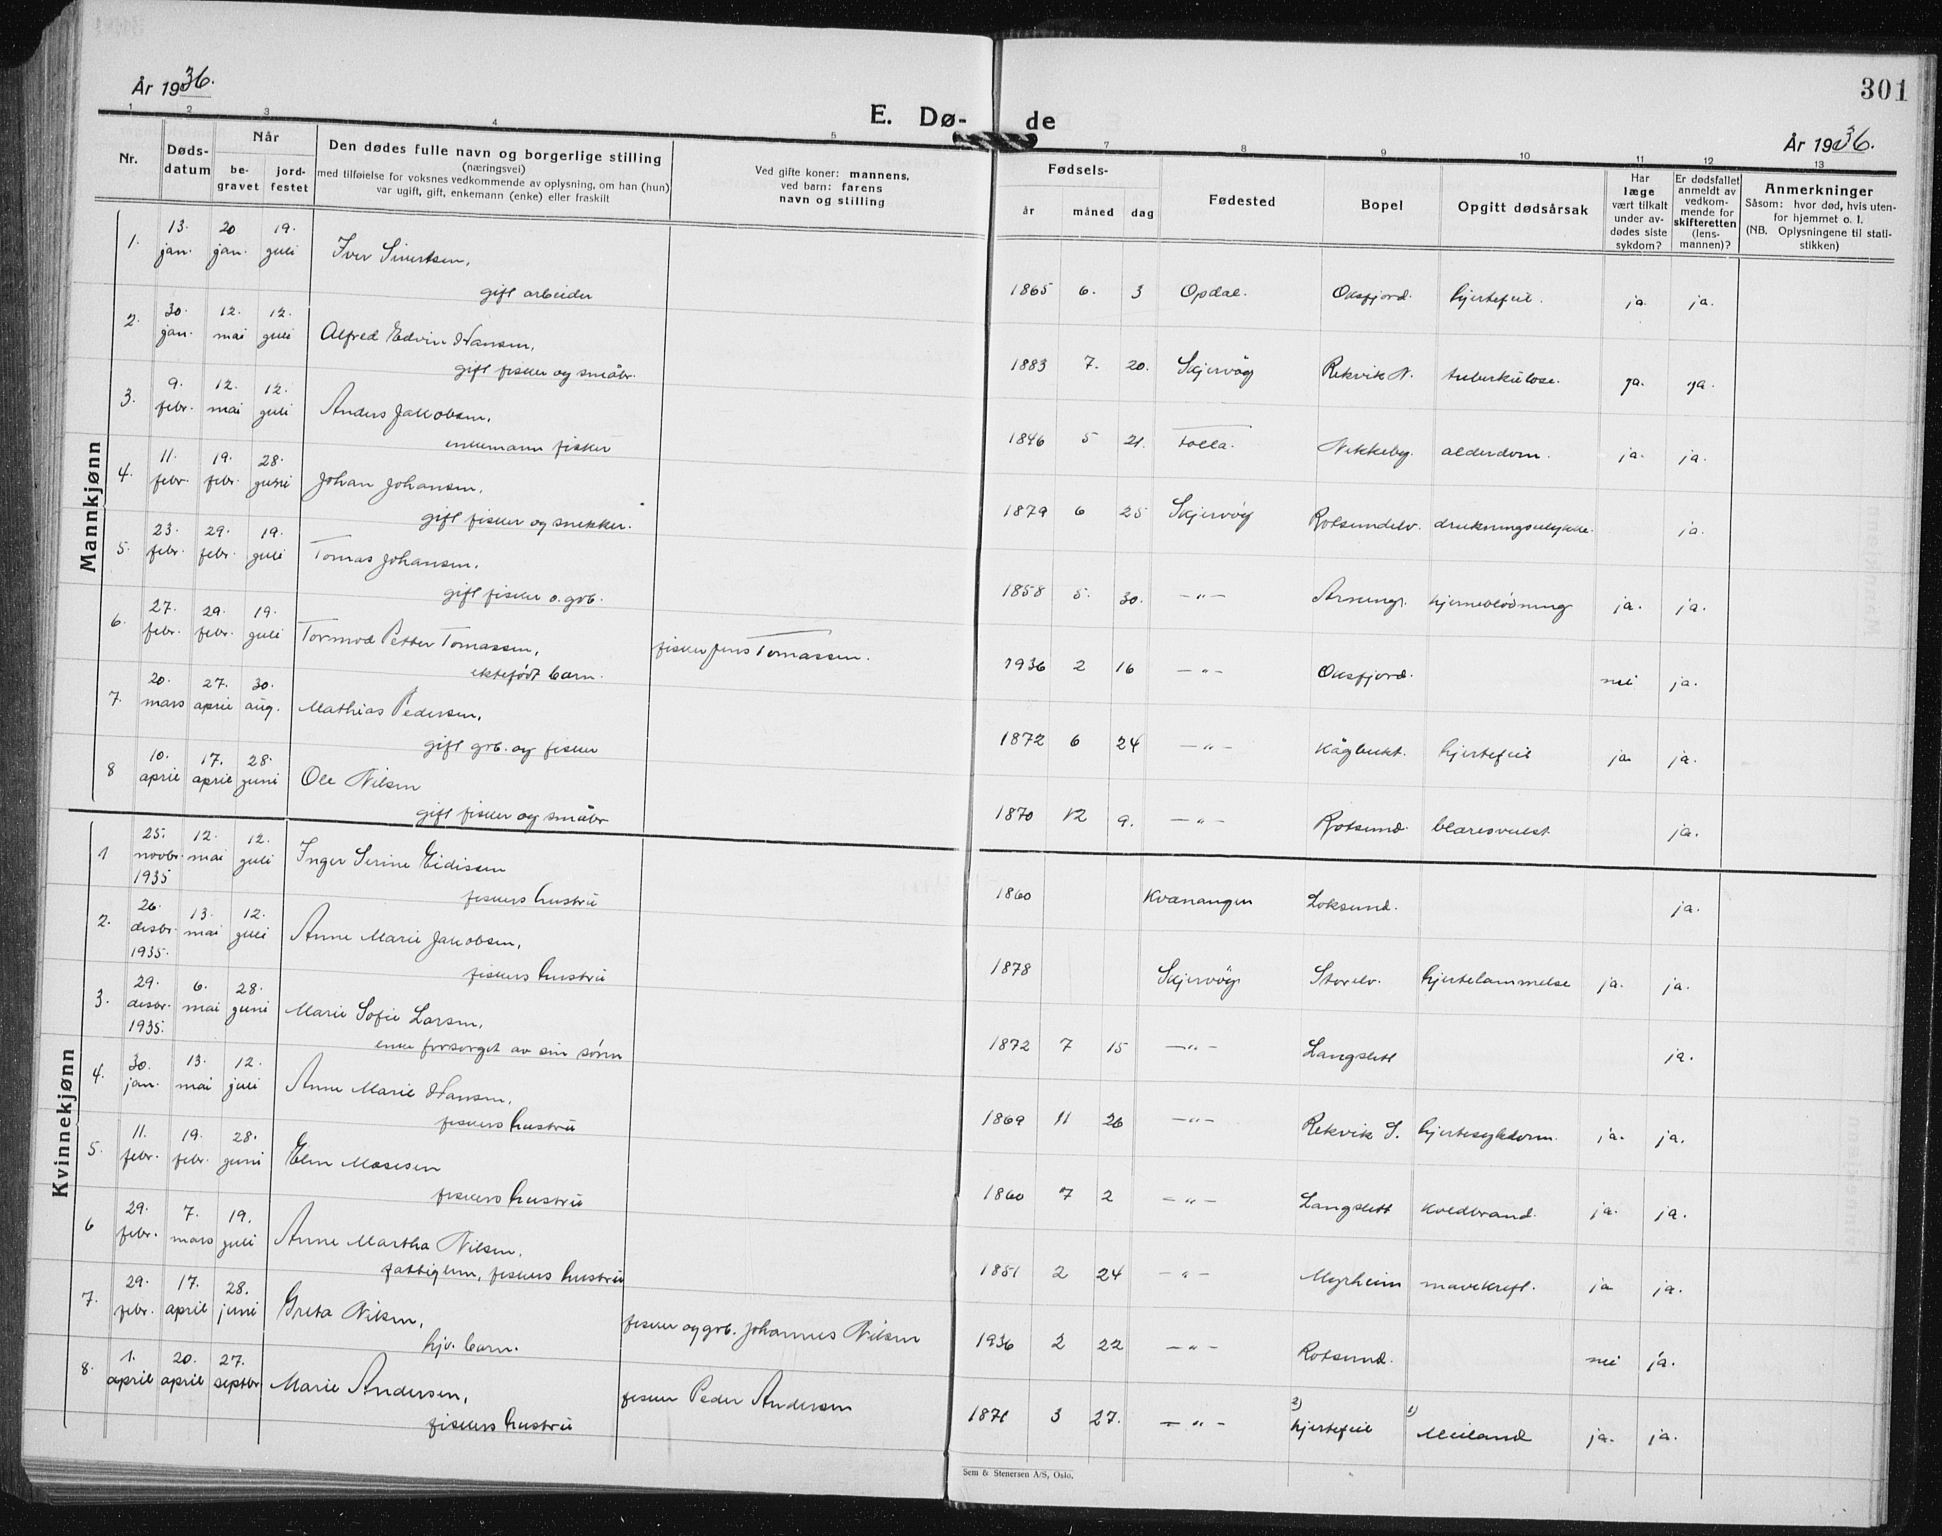 År 1936.
301
E. Døde
År 1936.
1 2 3 4 5 7 8 9 10 11 12 13
Nr.
Dødsdatum
Når
begravet
jordfestet
Den dødes fulle navn og borgerlige stilling
(næringsvei)
med tilføielse for voksnes vedkommende av oplysning, om han (hun)
var ugift, gift, enkemann (enke) eller fraskilt
Ved gifte koner: mannens,
ved barn: farens
navn og stilling
Fødsels-
år måned dag
Fødested
Bopel
Opgitt dødsårsak
Har læge vært tilkalt under avdødes siste sykdom?
Er dødsfallet anmeldt av vedkommende for skifteretten (lensmannen)?
Anmerkninger
Såsom: hvor død, hvis utenfor hjemmet o. l.
(NB. Oplysningene til statistikken)
Mannkjønn
1. 13. jan. 20 jan. 19. juli Iver Sivertsen, gift arbeider 1865 6. 3 Opdal. Oksfjord. hjertefeil. ja. ja.
2. 30. jan. 12. mai 12. juli Alfred Edvin Hansen, gift fisker og småbr. 1883 7. 20. Skjervöy Rekvik N. tuberkulose. ja. ja.
3. 9. febr. 12. mai 12. juli Anders Jakobsen, enkemann fisker 1846 5 21. Tolla. Nikkeby. alderdom. ja. ja.
4. 11. febr. 19. febr. 28. juni Johan Johansen, gift fisker og snekker. 1879 6 25 Skjervöy Rotsundelv. drukningsulykke. ja.
5. 23. febr. 29. febr. 19. juli Tomas Johansen, gift fisker o. grb. 1858 5. 30. —„— hjerneblödning ja. ja.
6. 27. febr. 29. febr. 19. juli Tormod Petter Tomassen, ektefödt barn. fisker Jens Tomassen. 1936 2 16 —„— Oksfjord. nei ja.
7. 20. mars 27. april 30. aug. Mathias Pedersen, gift grb. og fisker 1872 6 24 —„— Kågbukt. hjertefeil ja ja.
8 10. april 17. april 28. juni Ole Nilsen gift fisker og småbr 1870 12 9. —„— Rotsund. blæresvulst. ja.
Kvinnekjønn
1 25. novbr. 1935 12. mai 12. juli Inger Serine Eidissen fiskers hustru 1860 Kvænangen Loksund. ja.
2. 26. desbr. 1935. 13. mai 12. juli Anne Marie Jakobsen, fiskers hustru 1878 Skjervöy Storelv. hjertelammelse ja. ja.
3. 29. desbr. 1935. 6. mai 28. juni Marie Sofie Larsen, enke forsørget av sin sönn 1872 7 15 —„— Langslett ja.
4. 30. jan. 13. mai 12. juli Anne Marie Hansen, fiskers hustru 1869 11 26 —„— Rekvik S. hjertesykdom. ja. ja.
5. 11. febr. 19. febr. 28. juni Elen Mosesen fiskers hustru 1860 7 2 —„— Langslett koldbrand. ja. ja.
6 29. febr. 7. mars 19. juli Anne Martha Nilsen, fattiglem, fiskers hustru 1851 2 24 —„— Myrheim mavekreft. ja ja.
7. 29. febr. 17. april 28. juni Greta Nilsen, hjd. barn. fisker og grb. Johannes Nilsen 1936 2 22 —„— Rotsund. nei ja.
8. 1. april 20. april 27. septbr. Marie Andersen, fiskers hustru fisker Peder Andersen 1871 3 27. —„— 2) hjertefeil 1) Meiland ja. ja.
Sem & Stenersen A/S, Oslo.